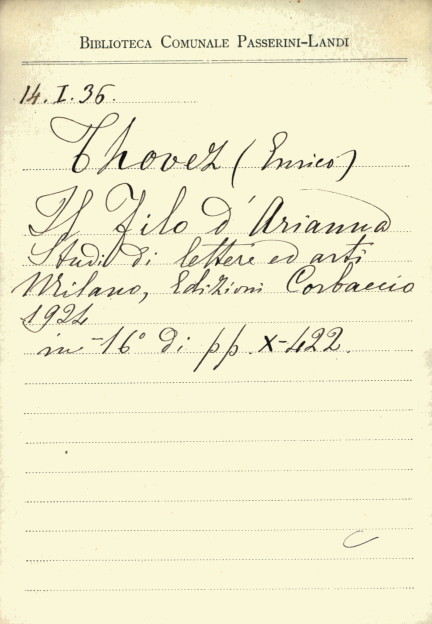 BIBLIOTECA COMUNALE PASSERINI-LANDI
14.I.36.
Thovez (Enrico)
Il Filo d'Arianna
Studii di lettere ed arti
Milano, Edizioni Corbaccio
1924
in -16° di pp. X-422.